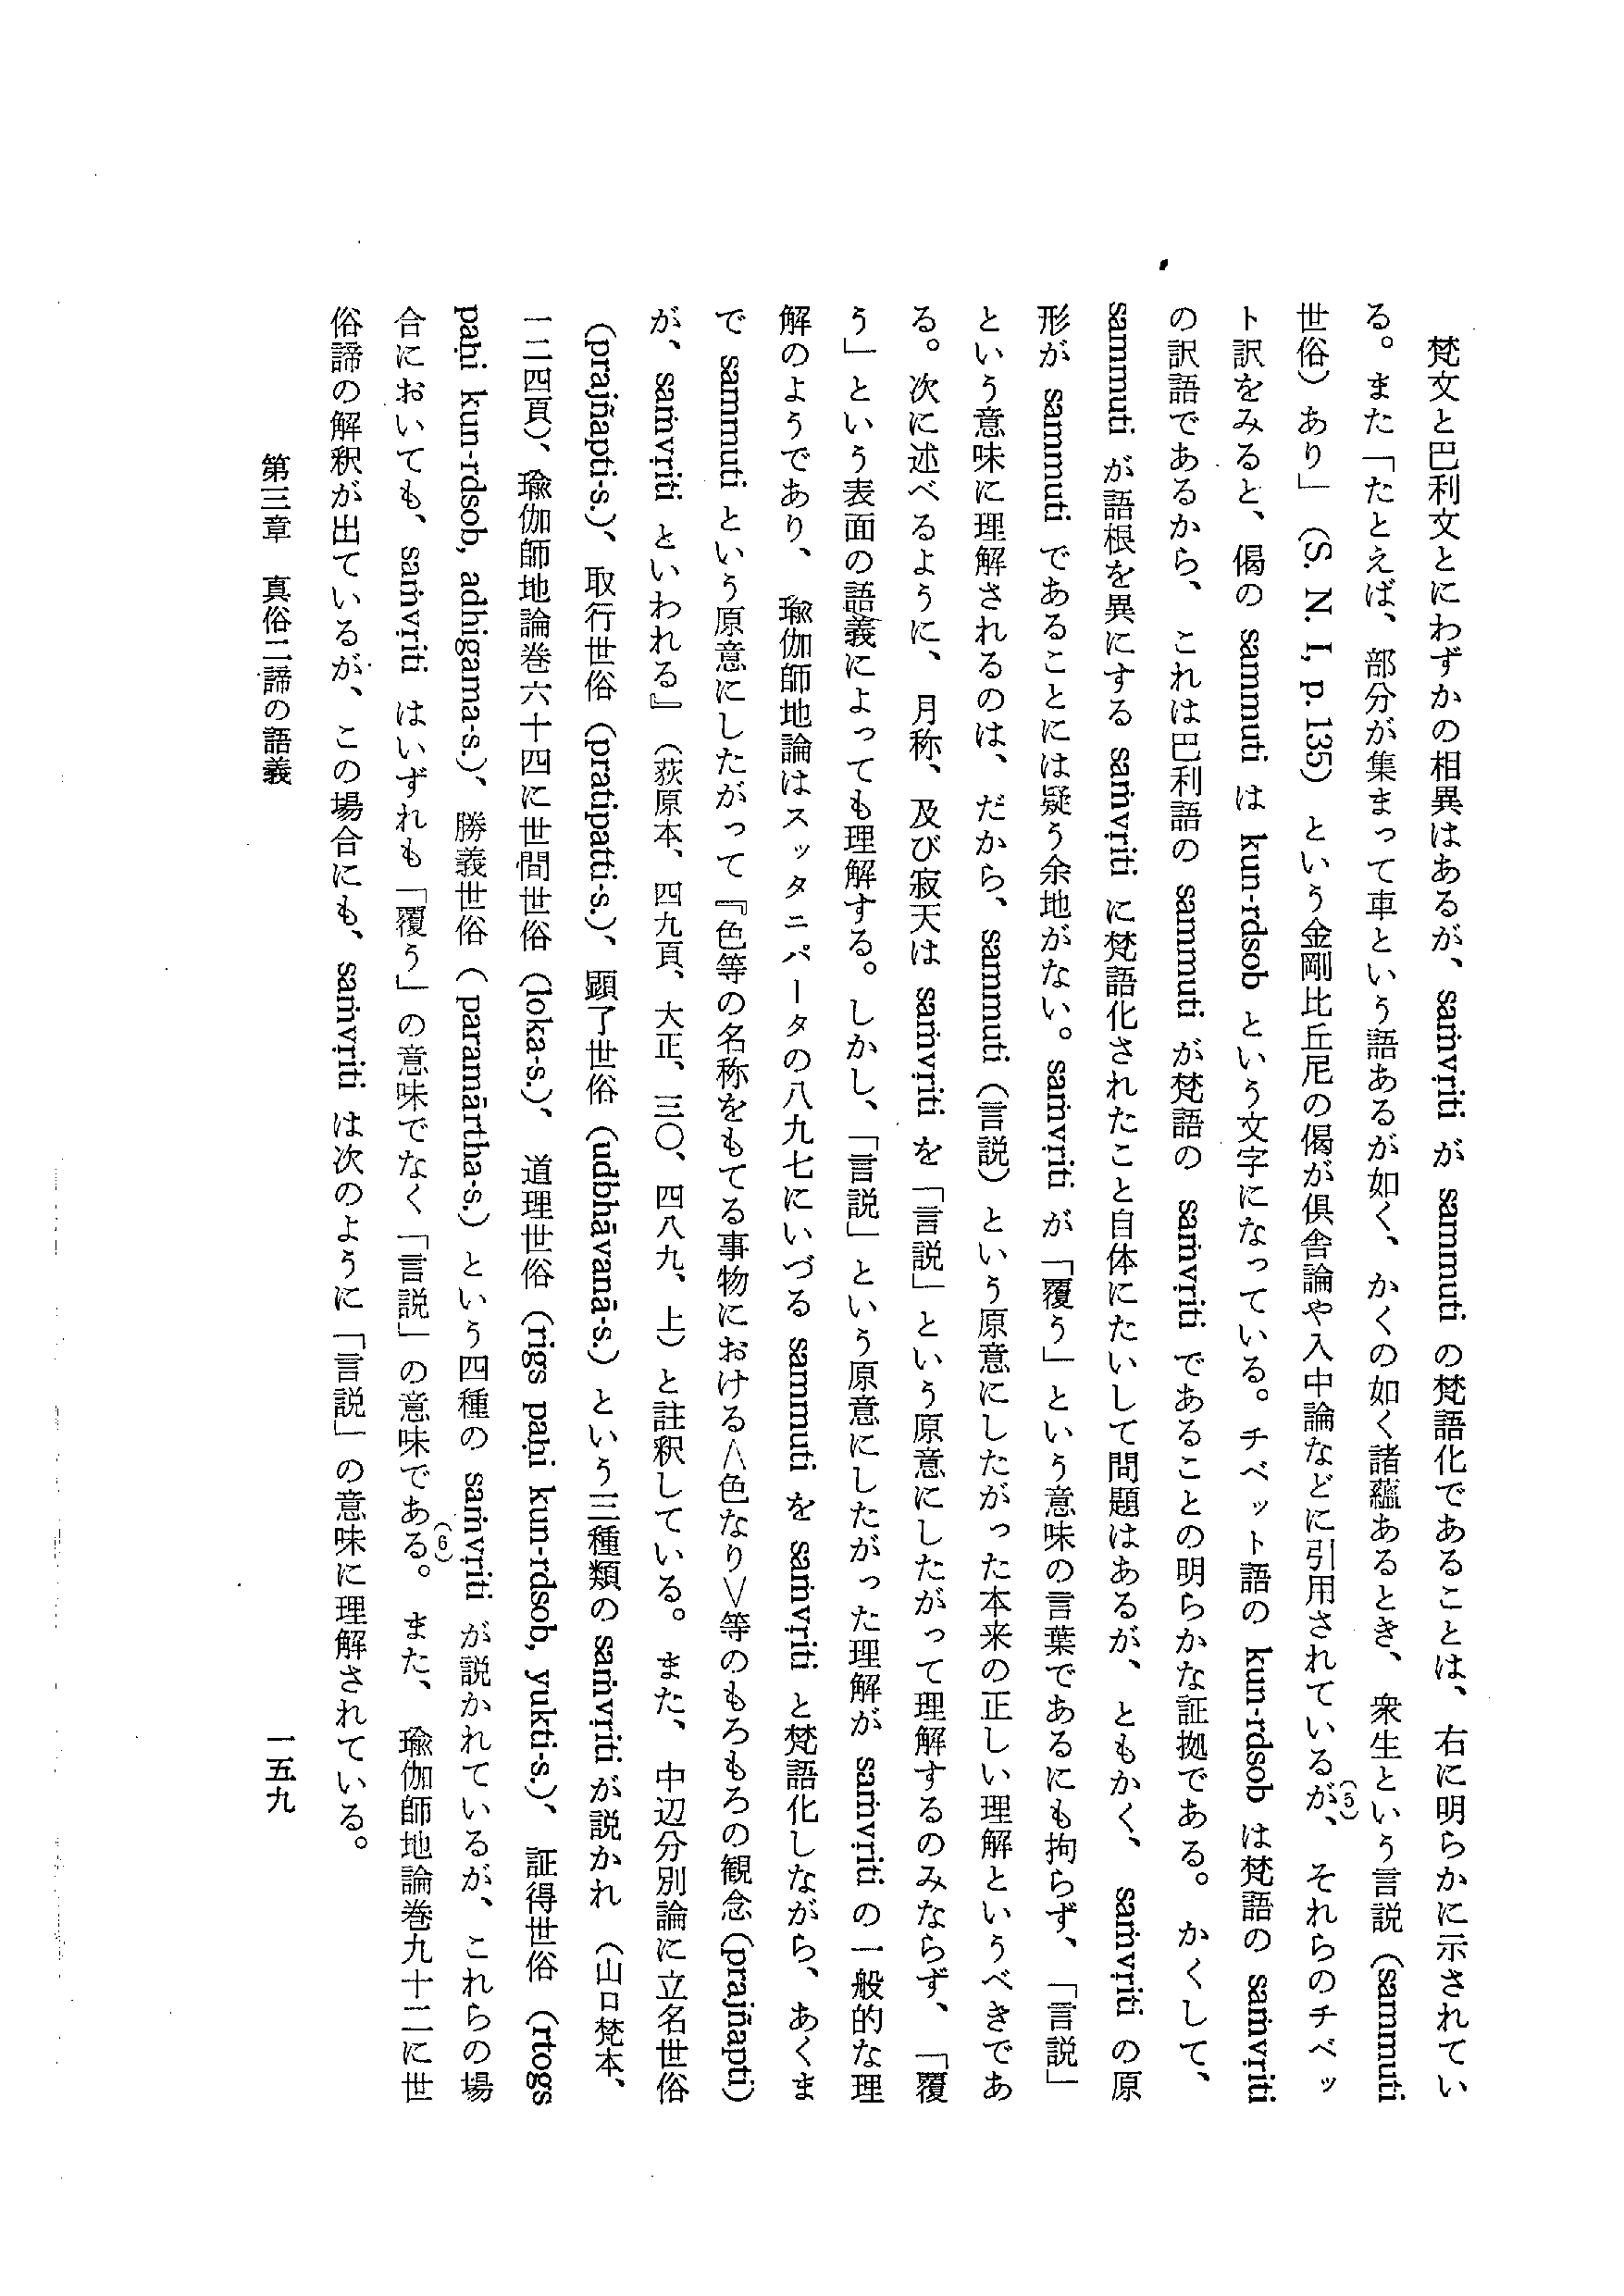 梵文と巴利文とにわずかの相異はあるが、saṁvṛiti が sammuti の梵語化であることは、右に明らかに示されてい
る。また「たとえば、部分が集まって車という語あるが如く、かくの如く諸蘊あるとき、衆生という言説（sammuti
世俗）あり」（S. N. I, p. 135）という金剛比丘尼の偈が俱舎論や入中論などに引用されているが、(5)それらのチベッ
ト訳をみると、偈の sammuti は kun-rdsob という文字になっている。チベット語の kun-rdsob は梵語の saṁvṛiti
の訳語であるから、これは巴利語の sammuti が梵語の saṁvṛiti であることの明らかな証拠である。かくして、
sammuti が語根を異にする saṁvṛiti に梵語化されたこと自体にたいして問題はあるが、ともかく、saṁvṛiti の原
形が sammuti であることには疑う余地がない。saṁvṛiti が「覆う」という意味の言葉であるにも拘らず、「言説」
という意味に理解されるのは、だから、sammuti（言説）という原意にしたがった本来の正しい理解というべきであ
る。次に述べるように、月称、及び寂天は saṁvṛiti を「言説」という原意にしたがって理解するのみならず、「覆
う」という表面の語義によっても理解する。しかし、「言説」という原意にしたがった理解が saṁvṛiti の一般的な理
解のようであり、瑜伽師地論はスッタニパータの八九七にいづる sammuti を saṁvṛiti と梵語化しながら、あくま
で sammuti という原意にしたがって『色等の名称をもてる事物における〈色なり〉等のもろもろの観念（prajñapti）
が、saṁvṛiti といわれる』（荻原本、四九頁、大正、三〇、四八九、上）と註釈している。また、中辺分別論に立名世俗
（prajñapti-s.）、取行世俗（pratipatti-s.）、顕了世俗（udbhāvanā-s.）という三種類の saṁvṛiti が説かれ（山口梵本、
一二四頁）、瑜伽師地論巻六十四に世間世俗（loka-s.）、道理世俗（rigs paḥi kun-rdsob, yukti-s.）、証得世俗（rtogs
paḥi kun-rdsob, adhigama-s.）、勝義世俗（paramārtha-s.）という四種の saṁvṛiti が説かれているが、これらの場
合においても、saṁvṛiti はいずれも「覆う」の意味でなく「言説」の意味である。(6)また、瑜伽師地論巻九十二に世
俗諦の解釈が出ているが、この場合にも、saṁvṛiti は次のように「言説」の意味に理解されている。
第三章　真俗二諦の語義
一五九